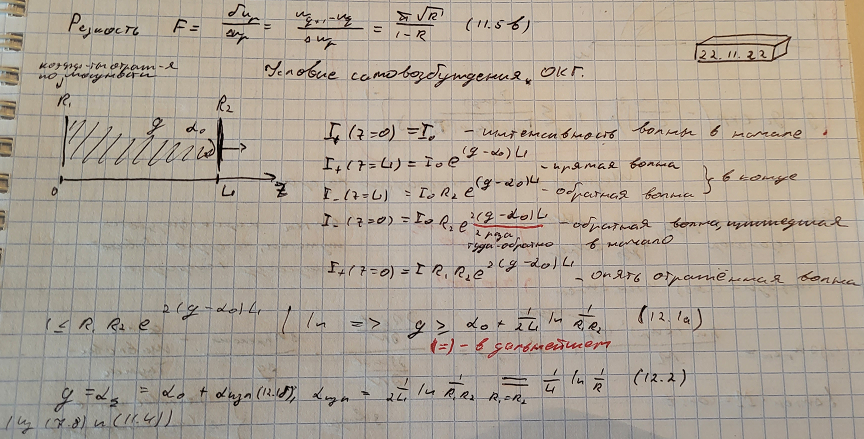 Резкость F = δν_p/Δν_p = (ν_{q+1} - ν_q)/Δν_p = π√R/(1-R) (11.5в)
22.11.22
коэфф-ты отраж-я по мощности
Условие самовозбуждения ОКГ.
R₁ R₂
g α₀
0 L z
I₊(z=0) = I₀ - интенсивность волны в начале
I₊(z=L) = I₀e^{(g-α₀)L} - прямая волна } в конце
I₋(z=L) = I₀R₂e^{(g-α₀)L} - обратная волна
I₋(z=0) = I₀R₂e^{2(g-α₀)L} - обратная волна, пришедшая в начало
2 раза туда-обратно
I₊(z=0) = I R₁R₂e^{2(g-α₀)L} - опять отражённая волна
1 ≤ R₁R₂e^{2(g-α₀)L} | ln => g ≥ α₀ + 1/2L ln 1/R₁R₂ (12.1а)
(=) - в дальнейшем
g = α_Σ = α₀ + α_изл (12.1б), α_изл = 1/2L ln 1/R₁R₂ =_{R₁=R₂} 1/L ln 1/R (12.2)
(из (7.8) и (11.4))